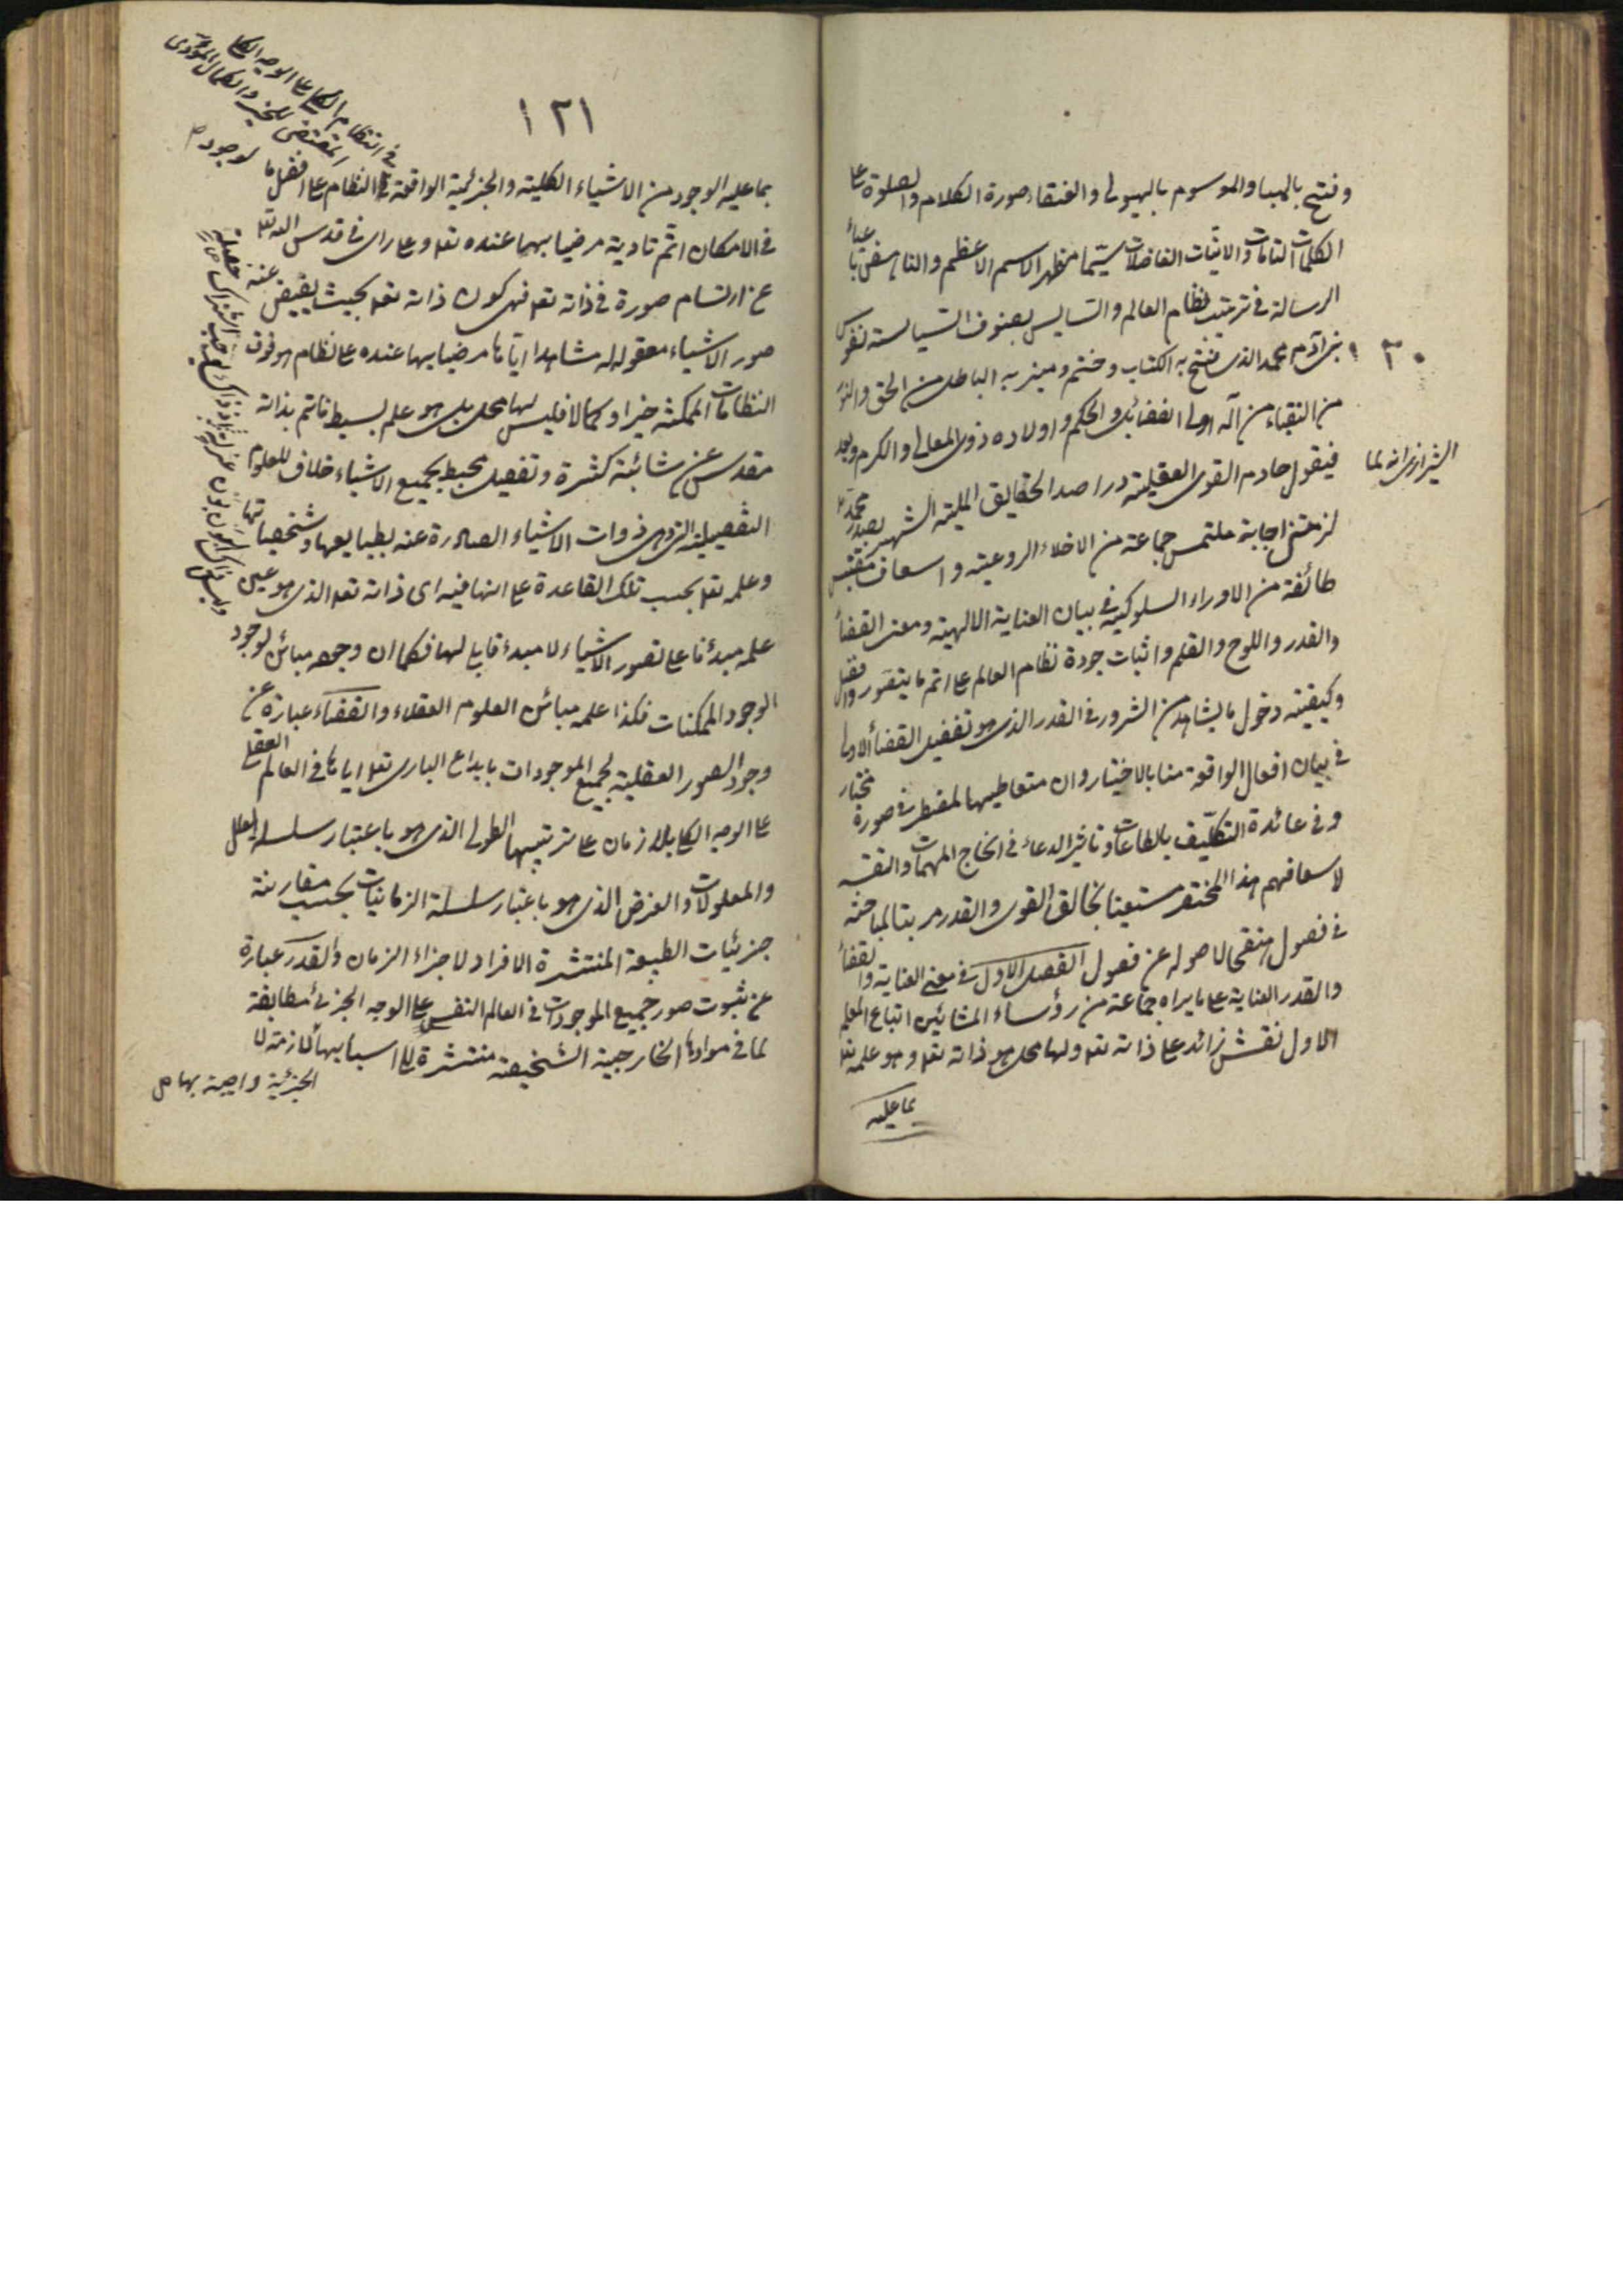 وفتح بالهباء الموسوم بالهيولى والعنقاء صورة الكلام والصلوة على
الكلمات التامات والانيّات الفاضلات سيّما مظهر الاسم الاعظم والناهض باعباء
الرسالة في ترتيب نظام العالم والسايس بصنوف السياسة نفوس
بنى آدم محمد الذى فتح به الكتاب وختم وميز به الباطل من الحق والنور
من النقباء من آله اولى الفضائل والحكم واولاده ذوى المعالى والكرم وبعد
فيقول خادم القوى العقلية وراصد الحقايق الملية الشهير بصدر محمد
الشيرازى انه لما
لزمتنى اجابة ملتمس جماعة من الاخلاء الروعية واسعاف مقتبس
طائفة من الاوراء السلوكية في بيان العناية الالهية ومعنى القضاء
والقدر واللوح والقلم واثبات جودة نظام العالم على اتم ما يتصور وافضل
وكيفية دخول ما يشاهد من الشرور في القدر الذى هو تفصيل القضاء الاولى
في بيان افعال الواقعة منا بالاختيار وان متعاطيها المضطر في صورة مختار
وفي عائدة التكليف بالطاعات وتاثير الدعاء في انجاح المهمات والفت
لاسعافهم هذا المختصر مستعينا بخالق القوى والقدر مرتبا لمباحثه
في فصول منقحا لاصوله عن فضول الفصل الاول في معنى العناية والقضاء
والقدر العناية على ما يراه جماعة من رؤساء المشائين اتباع المعلم
الاول نقش زائد على ذاته تعه ولها محل هو ذاته تعه وهو علمه تعه
بما عليه
١٢١
بما عليه الوجود من الاشياء الكلية والجزئية الواقعة في النظام على افضل ما
في النظام الكلى على الوجه الكلى
المقتضى للخير والكمال المؤدى
لوجود ص
في الامكان اتم تادية مرضيا بهما عنده تعه وعلى راى في قدس الله تعه
عن ارتسام صورة في ذاته تعه فهى كون ذاته تعه بحيث يفيض عنه
صور الاشياء معقوله له مشاهدا اياها مرضيا بها عنده على نظام هو فوق
النظامات الممكنة خيرا وكمالا فليس لها محل بل هو علم بسيط قائم بذاته
مقدس عن شائبة كثرة وتفصيل محيط بجميع الاشياء خلاف للعلوم
التفصيلية التى هى ذوات الاشياء الصادرة عنه بطبايعها وشخصياتها
وعلمه تعه بحسب تلك القاعدة على انها فيه اى ذاته تعه الذى هو عين
علمه مبدأ ما على تصور الاشياء لا مبدء قابلى لها فكما ان وجوده مبائن لوجود
الوجود الممكنات فكذا علمه مبائن العلوم العقلاء والقضاء عبارة عن
وجود الصور العقلية لجميع الموجودات بابداع البارى تعه اياها في العالم العقلى
على الوجه الكلى بلا زمان على ترتيبها الطولى الذى هو باعتبار سلسلة العلل
والمعلولات والعرض الذى هو باعتبار سلسلة الزمانيات بحسب مقارنة
جزئيات الطبيعة المنتشرة الافراد لاجزاء الزمان والقدر عبارة
عن ثبوت صور جميع الموجودات في العالم النفسى على الوجه الجزئى مطابقة
لما في موادها الخارجية الشخصية منتشرة الى اسبابها لازمة لا
الجزئية واجبة بها ص